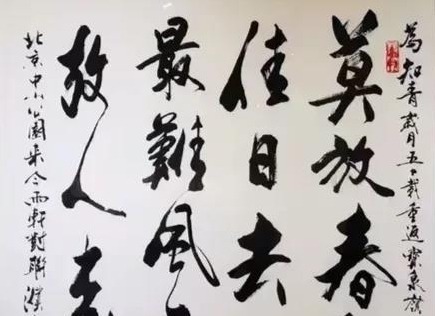 為知青歲月五十載重返寶泉嶺
莫放春
佳日去
最難風
故人
北京中山公園來今雨軒對聯